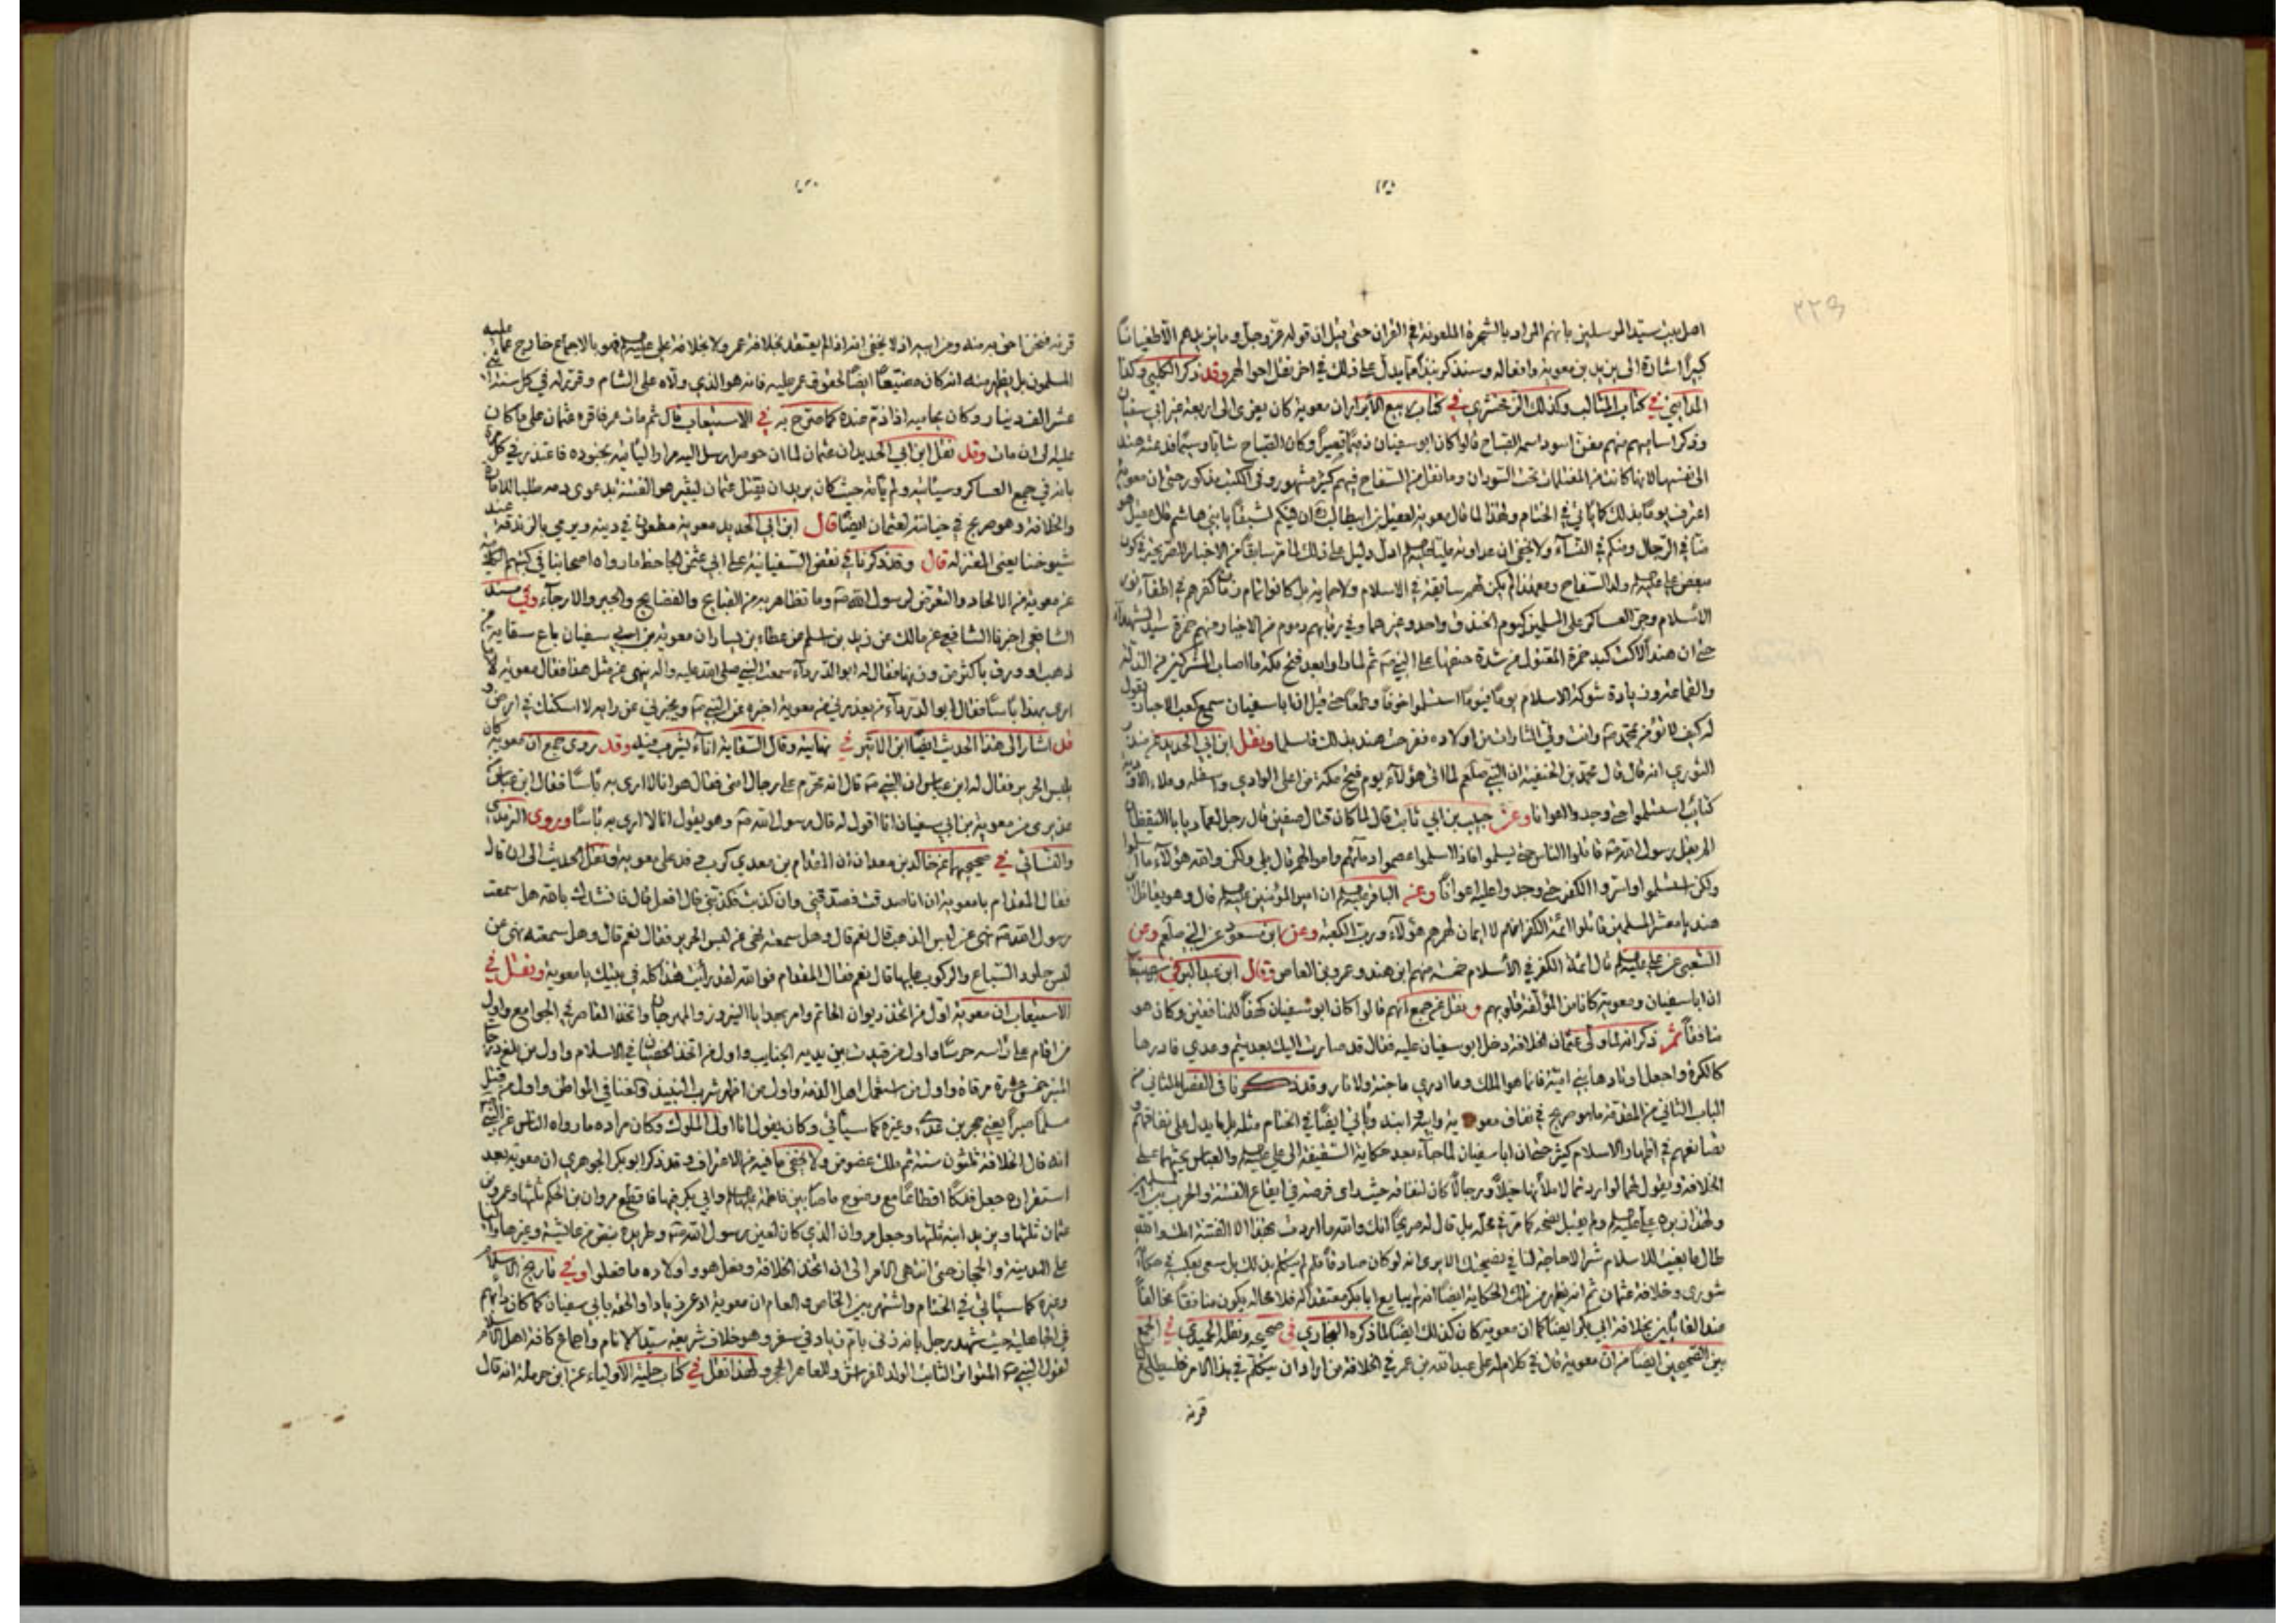 اهل بيت سيد المرسلين بانهم المراد بالشجرة الملعونة في القران حتى قيل ان قوله عز وجل وما يزيدهم الا طغيانا
كبيرا اشارة الى يزيد بن معوية وافعاله وسنذكر نبذا مما يدل على ذلك في اخر نقل احوالهم وقد ذكر الكلبي وكذا
المدايني في كتاب المثالب وكذلك الزمخشري في كتاب ربيع الأبرار ان معوية كان يعزى الى اربعة غير ابي سفيان
وذكر اساميهم منهم مغن اسود اسمه الصباح قالوا كان ابو سفيان ذميما قصيرا وكان الصباح شابا وسيما فدعته هند
الى نفسها لانها كانت من المغتلمات تحب السودان وما نقل من السفاح فيهم كثير مشهور وفي الكتب مذكور حتى ان معوية
اعترف يوما بذلك كما يأتي في الختام ولهذا لما قال معوية لعقيل بن ابيطالب ان فيكم لشبقا يا بني هاشم قال عقيل هو
منا في الرجال ومنكم في النساء ولا يخفى ان عداوته عليا عليه السلام ادل دليل على ذلك لما مر سابقا من الاخبار الصريحة في كون
مبغض علي عليه السلام ولد السفاح ومعهذا لم يكن لهم سابقة في الاسلام ولا حماية بل كانوا تمام كفرهم في اطفاء نور
الاسلام وجر العساكر على المسلمين كيوم الخندق واحد وغيرهما وفي رقابهم دموم من الاخيار ومنهم حمزة سيد الشهداء
حتى ان هندا لاكت كبد حمزة المقتول من شدة حنقها على النبي ص ثم لما راوا بعد فتح مكة ما اصاب المشركين من الذلة
والقماءة وزيادة شوكة الاسلام يوما فيوما استسلموا خوفا وطمعا حتى قيل ان ابا سفيان سمع كعب الاحبار يقول
فقرحت هند بذلك فاسلما ونقل ابن ابي الحديد عن منذر
الثوري انه قال قال محمد بن الحنفية ان النبي صلعم لما اتى هؤلاء يوم فتح مكة من اعلى الوادي واسفله وملاء الاودية
كتائب استسلموا حتى وجدوا اعوانا وعن حبيب بن ابي ثابت قال لما كان قتال صفين قال رجل لعمار يا ابا اليقظان
الم يقل رسول الله ص قاتلوا الناس حتى يسلموا فاذا اسلموا عصموا دمائهم واموالهم قال بلى ولكن والله هؤلاء ما اسلموا
ولكن استسلموا واسروا الكفر حتى وجدوا عليه اعوانا وعن الباقر عليه السلام ان امير المؤمنين عليه السلام قال وهو يقاتل ابن
هند يا معشر المسلمين قاتلوا ائمة الكفر انهم لا ايمان لهم هم هؤلاء ورب الكعبة وعن ابن مسعود عن النبي صلعم وعن
الشعبي عن علي عليه السلام قال ائمة الكفر في الاسلام خمسة منهم ابن هند وعمرو بن العاص وقال ابن عبد البر في
ان ابا سفيان ومعوية كانا من المؤلفة قلوبهم ونقل عن جمع انهم قالوا كان ابو سفيان كهفا للمنافقين وكان هو
منافقا ثم ذكر انه لما ولى عثمان الخلافة دخل ابو سفيان عليه فقال قد صارت اليك بعد تيم وعدي فادرها
كالكرة واجعل اوتادها بني امية فانما هو الملك وما ادري ما جنة ولا نار وقد ذكرنا في الفصل الثاني من
الباب الثاني من المقدمة ما هو صريح في نفاق معوية وابيه وابنه ويأتي ايضا في الختام مثله بل ما يدل على نفاقهم و
تصانعهم في اظهار الاسلام كثير حتى ان ابا سفيان لما جاء بعد حكاية السقيفة الى علي عليه السلام والعباس يحثهما على
الخلافة ويقول لهما لو اردتما لاملأنها خيلا ورجالا كان لنفاقه حيث راى فرصة في ايقاع الفتنة والحرب بين المسلمين
ولهذا زبره علي عليه السلام ولم يقبل نصحه كما مر في محله بل قال له صريحا انك والله ما اردت بهذا الا الفتنة وانك والله
طال ما بغيت للاسلام شرا لا حاجة لنا في نصيحتك الا يرى انه لو كان صادقا فلم لم يتكلم بذلك بل سعى بعكسه في حكاية
شورى وخلافة عثمان ثم انه يظهر من تلك الحكاية ايضا انه لم يبايع ابا بكر معتقدا له فلا محالة يكون منافقا مخالفا
عند القائلين بخلافة ابي بكر ايضا كما ان معوية كان كذلك ايضا لما ذكره البخاري في صحيحه ونقله الحميدي في الجمع
بين الصحيحين ايضا من ان معوية قال في كلام له على عبد الله بن عمر في الخلافة من اراد ان يتكلم في هذا الامر فليطلع
قرنه
قرنه فنحن احق به منه ومن ابيه اذ لا يخفى انه اذا لم يعتقد بخلافة عمر ولا بخلافة علي عليه السلام فهو بالاجماع خارج عما عليه
المسلمون بل يظهر منه انه كان مضيعا ايضا لحقوق عمر عليه فانه هو الذي ولاه على الشام وقرر له في كل سنة اثني
عشر الف دينار وكان يحاميه اذا ذم عنده كما صرح به في الاستيعاب قال ثم مات عمر فاقره عثمان على ما كان
عليه الى ان مات وقد نقل ابن ابي الحديد ان عثمان لما ان حوصر ارسل اليه مرارا ليأتيه بجنوده فاعتذر في كل مرة
بانه في جمع العساكر وسيأتيه ولم يأته حيث كان يريد ان يقتل عثمان ليقيم هو الفتنة بدعوى دمه طلبا للامارة
والخلافة وهو صريح في خيانته لعثمان ايضا قال ابن ابي الحديد معوية مطعون في دينه ويرمي بالزندقة عند
شيوخنا يعني المعتزلة قال وقد ذكرنا في نقض السفيانية على ابي عثمن الجاحظ ما رواه اصحابنا في كتبهم الكلامية
عن معوية من الالحاد والتعرض لرسول الله ص وما تظاهر به من القبايح والفضايح والجبر والارجاء وفي مسند
الشافعي اخبرنا الشافعي عن مالك عن زيد بن اسلم عن عطاء بن يسار ان معوية بن ابي سفيان باع سقاية من
ذهب او ورق باكثر من وزنها فقال له ابو الدرداء سمعت النبي صلى الله عليه واله ينهى عن مثل هذا فقال معوية لا
ارى بهذا بأسا فقال ابو الدرداء من يعذرني من معوية اخبره عن النبي ص ويخبرني عن رأيه لا اسكنك في ارض و
قد اشار الى هذا الحديث ايضا ابن الاثير في نهايته وقال السقاية اناء يشرب فيه وقد روى جمع ان معوية كان
يلبس الحرير فقال له ابن عباس ان النبي ص قال انه محرم على رجال امتي فقال هو انا لا ارى به بأسا فقال ابن عباس
من عذيري من معوية بن ابي سفيان انا اقول له قال رسول الله ص وهو يقول انا لا ارى به بأسا وروى الترمذي
والنسائي في صحيحهما عن خالد بن معدان ان المقدام بن معدي كرب وفد على معوية ونقل الحديث الى ان قال
فقال المقدام يا معوية ان انا صدقت فصدقني وان كذبت فكذبني قال افعل قال فانشدك بالله هل سمعت
رسول الله ص نهى عن لبس الذهب قال نعم قال وهل سمعته نهى عن لبس الحرير فقال نعم قال وهل سمعته نهى عن
لبس جلود السباع والركوب عليها قال نعم فقال المقدام فوالله لقد رأيت هذا كله في بيتك يا معوية ونقل في
الاستيعاب ان معوية اول من اتخذ ديوان الخاتم وامر بهدايا النيروز والمهرجان واتخذ المقاصر في الجوامع واول
من اقام على رأسه حرسا واول من قيدت بين يديه الجنايب واول من اتخذ الخصيان في الاسلام واول من بلغ درجات
المنبر خمس عشرة مرقاة واول من استعمل اهل الذمة واول من اظهر شرب النبيذ والغنا في المواطن واول من قتل
مسلما صبرا يعني حجر بن عدي وغيره كما سيأتي وكان يقول انا اول الملوك وكان مراده ما رواه الناس عن النبي
انه قال الخلافة ثلثون سنة ثم ملك عضوض ولا يخفى ما فيه من الاعتراف وقد ذكر ابو بكر الجوهري ان معوية بعد
استقراره جعل فدكا اقطاعا مع وضوح ما صار بين فاطمة عليها السلام وابي بكر فيها فاقطع مروان بن الحكم ثلثها وعمرو بن
عثمان ثلثها ويزيد ابنه ثلثها وجعل مروان الذي كان لعين رسول الله ص وطريده بنص من عائشة وغيرها واليا
على المدينة والحجاز حتى انتهى الامر الى ان اتخذ الخلافة وفعل هو واولاده ما فعلوا وفي تاريخ الاسلام
وغيره كما سيأتي في الختام واشتهر بين الخاص والعام ان معوية ادعى زيادا والحقه بابي سفيان كما كان دابهم
في الجاهلية حيث شهد رجل بانه زنى بام زياد في سفر وهو خلاف شريعة سيد الانام واجماع كافة اهل الاسلام
لقول النبي ص المتواتر الثابت الولد للفراش وللعاهر الحجر ولهذا نقل في كتاب حلية الأولياء عن ابن حرملة انه قال